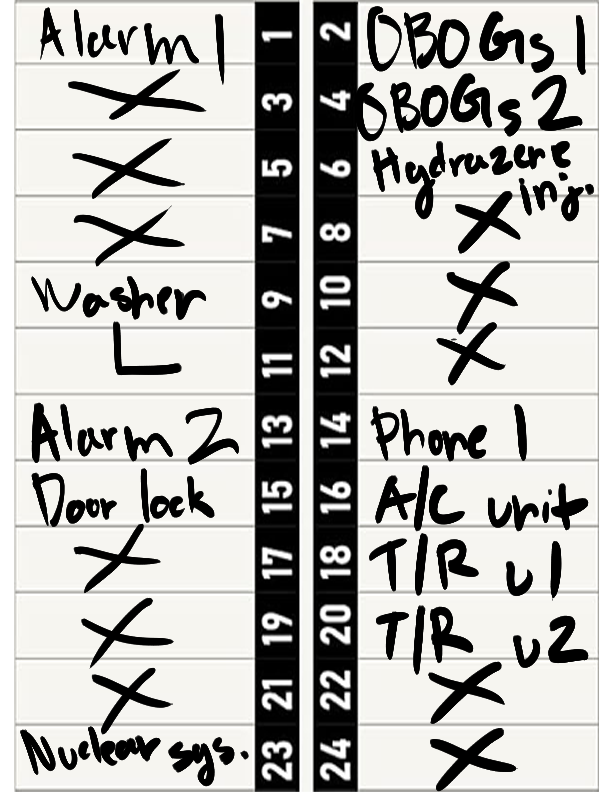 Alarm 1 1 2 OBOGs 1
X 3 4 OBOGs 2
X 5 6 Hydrazene inj.
X 7 8 X
Washer 9 10 X
L 11 12 X
Alarm 2 13 14 Phone 1
Door lock 15 16 A/C unit
X 17 18 T/R u1
X 19 20 T/R u2
X 21 22 X
Nuclear sys. 23 24 X